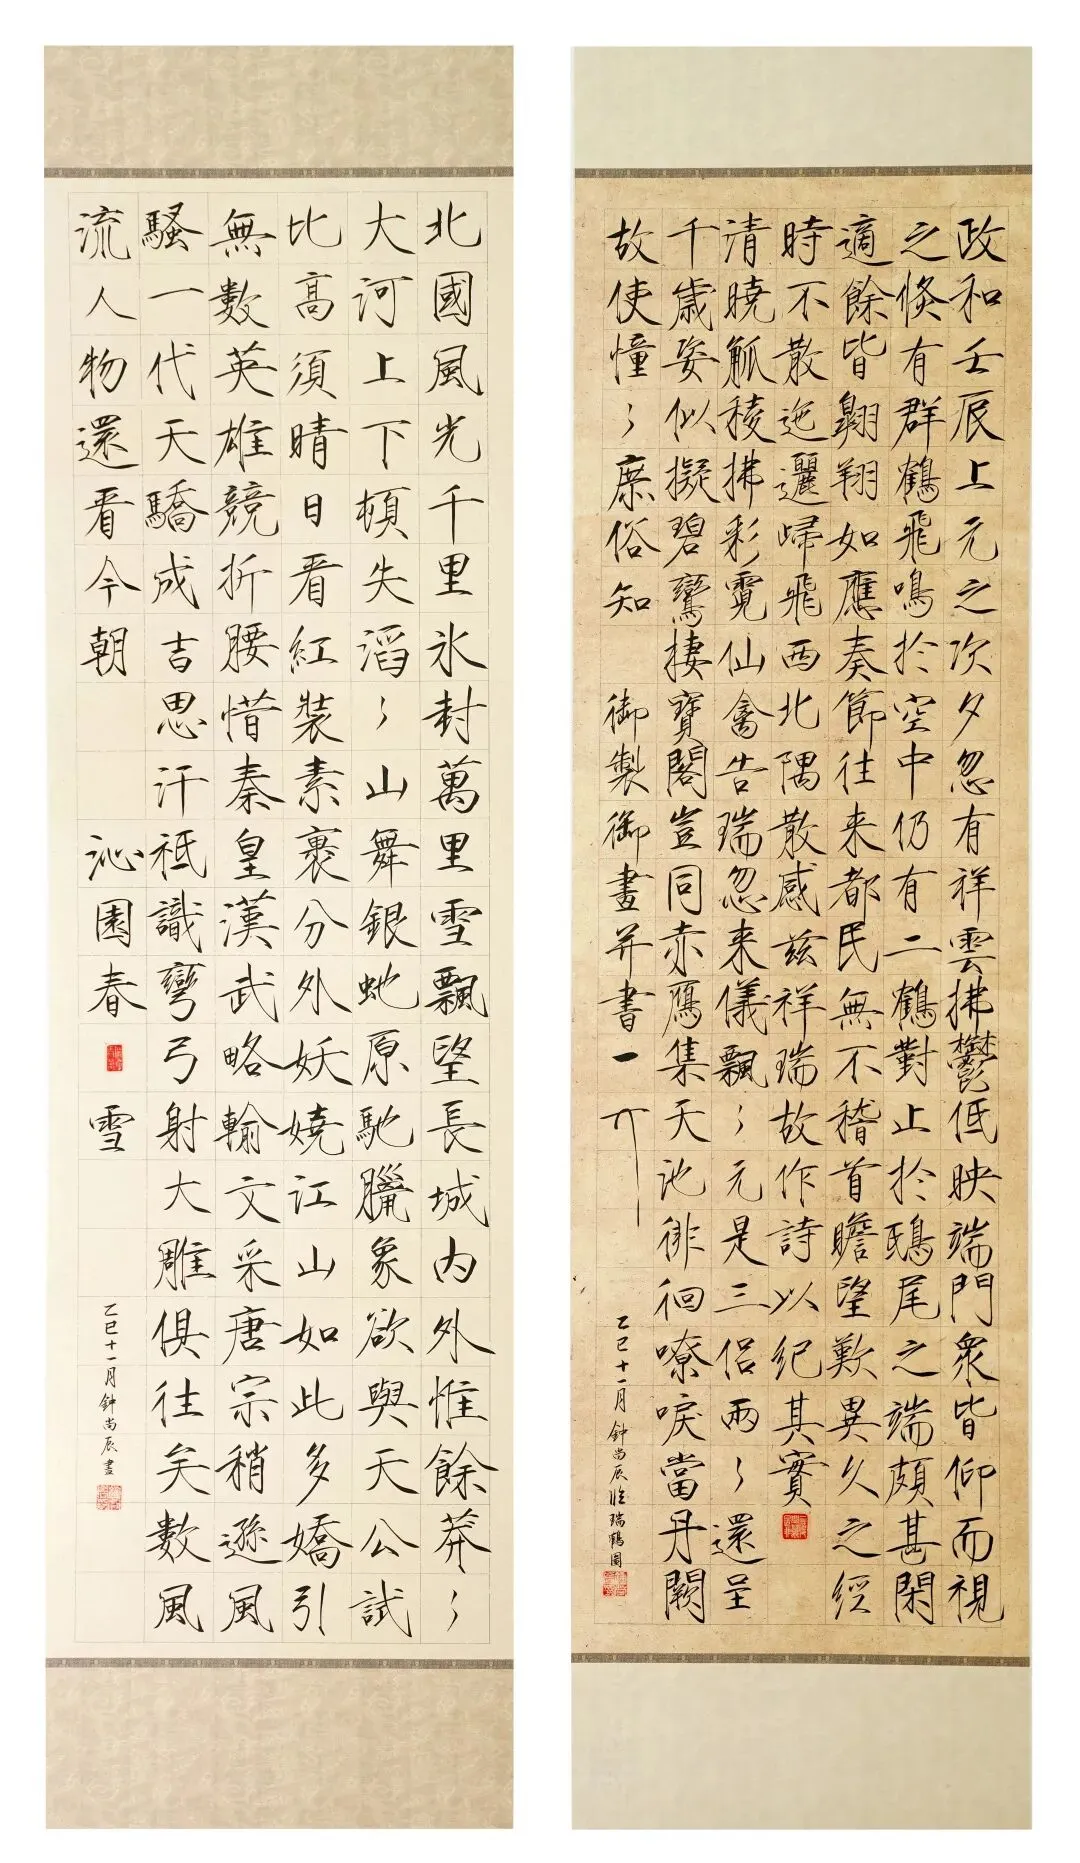 政和壬辰上元之次夕忽有祥雲拂鬱低映端門衆皆仰而視
之倐有群鶴飛鳴於空中仍有二鶴對止於鴟尾之端頗甚閑
適餘皆翱翔如應奏節往来都民無不稽首瞻望歎異久之經
時不散迤邐歸飛西北隅散感兹祥瑞故作詩以紀其實
清曉觚稜拂彩霓仙禽告瑞忽来儀飄〻元是三侶兩〻還呈
千歲姿似擬碧鸞棲寶閣豈同赤鴈集天池徘徊嘹唳當丹闕
故使憧〻庶俗知 御製御畫并書一
乙巳十一月鈡尚辰臨瑞鶴圖
北國風光千里氷封萬里雪飄望長城内外惟餘莽〻
大河上下頓失滔〻山舞銀虵原馳臘象欲與天公試
比高須晴日看紅裝素裹分外妖嬈江山如此多嬌引
無數英雄競折腰惜秦皇漢武略輸文采唐宗稍遜風
騷一代天驕成吉思汗祗識彎弓射大雕俱往矣數風
流人物還看今朝 沁園春 雪
乙巳十一月鈡尚辰書